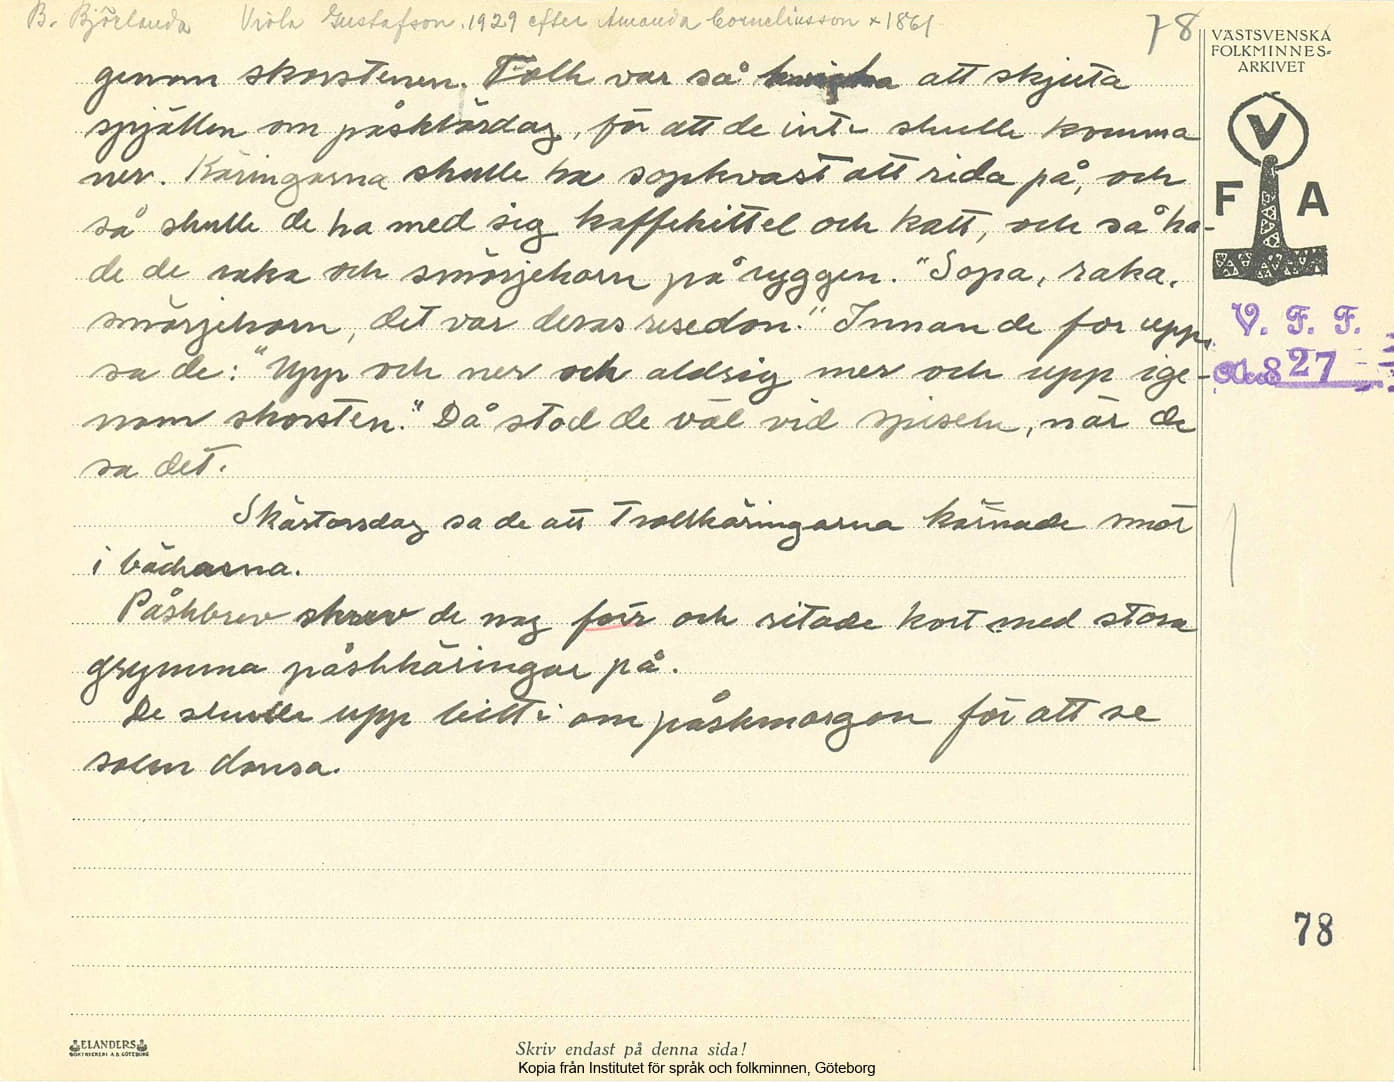 B. Björlanda Viola Gustafson 1929 efter Amanda Corneliusson * 1861
78
VÄSTSVENSKA
FOLKMINNES-
ARKIVET
V
F A
V. F. F.
827
genom skorstenen. Folk var så att skjuta
spjällen om påsklördag, för att de inte skulle komma
ner. Käringarna skulle ha sopkvast att rida på, och
så skulle de ha med sig kaffekittel och katt, och så ha-
de de raka och smörjehorn på ryggen. "Sopa, raka,
smörjehorn, det var deras resedon." Innan de for upp,
sa de: "Upp och ner och aldrig mer och upp ige-
nom skorsten." Då stod de väl vid spiseln, när de
sa det.
Skärtorsdag sa de att trollkäringarna kärnade smör
i bäckarna.
Påskbrev skrev de nog förr och ritade kort med stora
grymma påskkäringar på.
De skulle upp bitti om påskmorgon för att se
solen dansa.
78
ELANDERS
BOKTRYCKERI A.B. GÖTEBORG
Skriv endast på denna sida!
Kopia från Institutet för språk och folkminnen, Göteborg